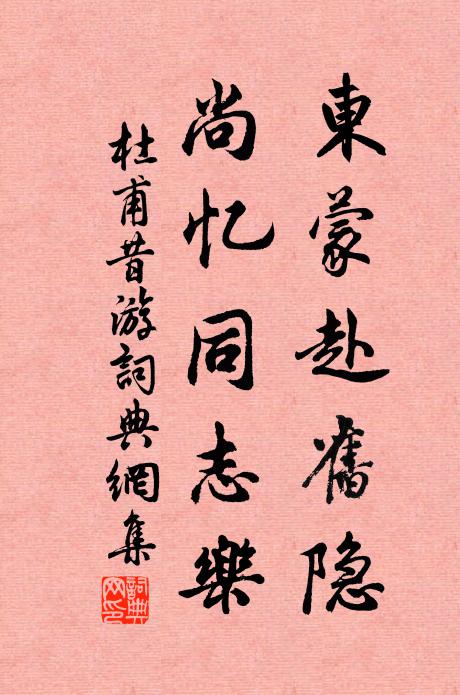 東蒙赴舊隐
尚忆同志樂
杜甫昔游詞典網集
詞典网印